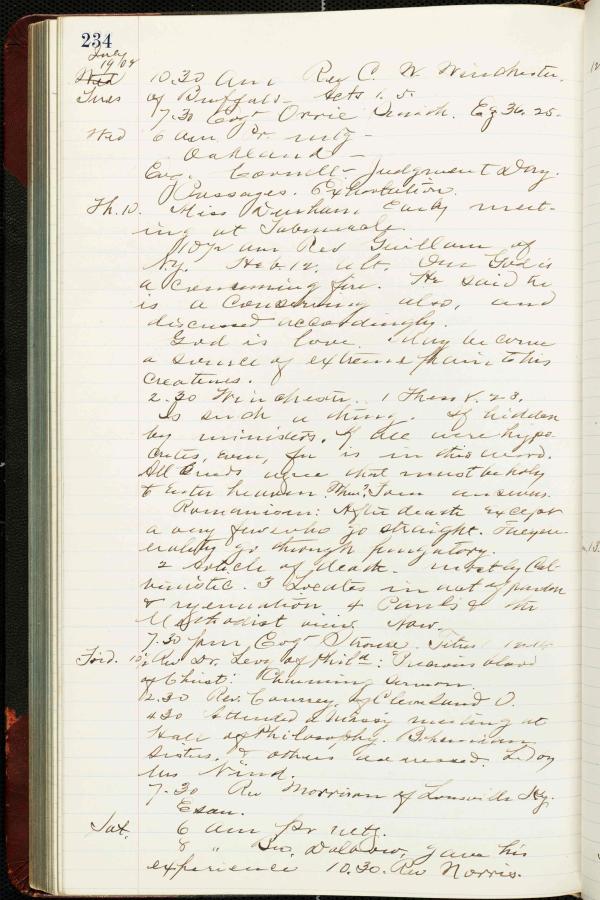 234
July
19/04
Wed 10.30 am Rev C. W. Winchester.
Tues of Buffalo - Acts 1.5.
7.30 Evgt Orrie Smith. Ez 36.25.
Wed 6 am Pr. mtg -
Oakland -
Eve. Cornell - Judgment Day.
Passages. Exhortation.
Th. 10. Miss Dunham Early meet-
ing at Tabernacle.
10½ am Rev Guillam of
N.Y. Heb. 12. ult. Our God is
a consuming fire. He said he
is a conserving also, and
discussed accordingly.
God is love. May become
a source of extreme pain to his
creatures.
2.30 Winchester. 1 Thess V. 23.
Is such a thing. If hidden
by ministers. If all were hypo-
crites, even, for is in this word.
All Creeds agree that must be holy
to enter heaven. When? Four answers.
Romanism: After death except
a very few who go straight. The gen-
erality go through purgatory.
2 Article of death. mostly Cal-
vinistic. 3 Locates in act of pardon
& regeneration 4 Paul's & the
Methodist view Now.
7.30 pm Evgt Strouse. Titus
Frid. 10½ Rev Dr. Levy of Phila: Precious blood
of Christ: Charming sermon.
12.30 Rev. of Cleveland O.
4.30 Attended a Missy meeting at
Hall of Philosophy. Bohemian
sisters, & others addressed. Led by
Mrs Nind.
7.30 Rev Morrison of Louisville Ky.
Esau.
Sat. 6 am pr mtg.
8 " Bro. gave his
experience 10.30. Rev Norris.